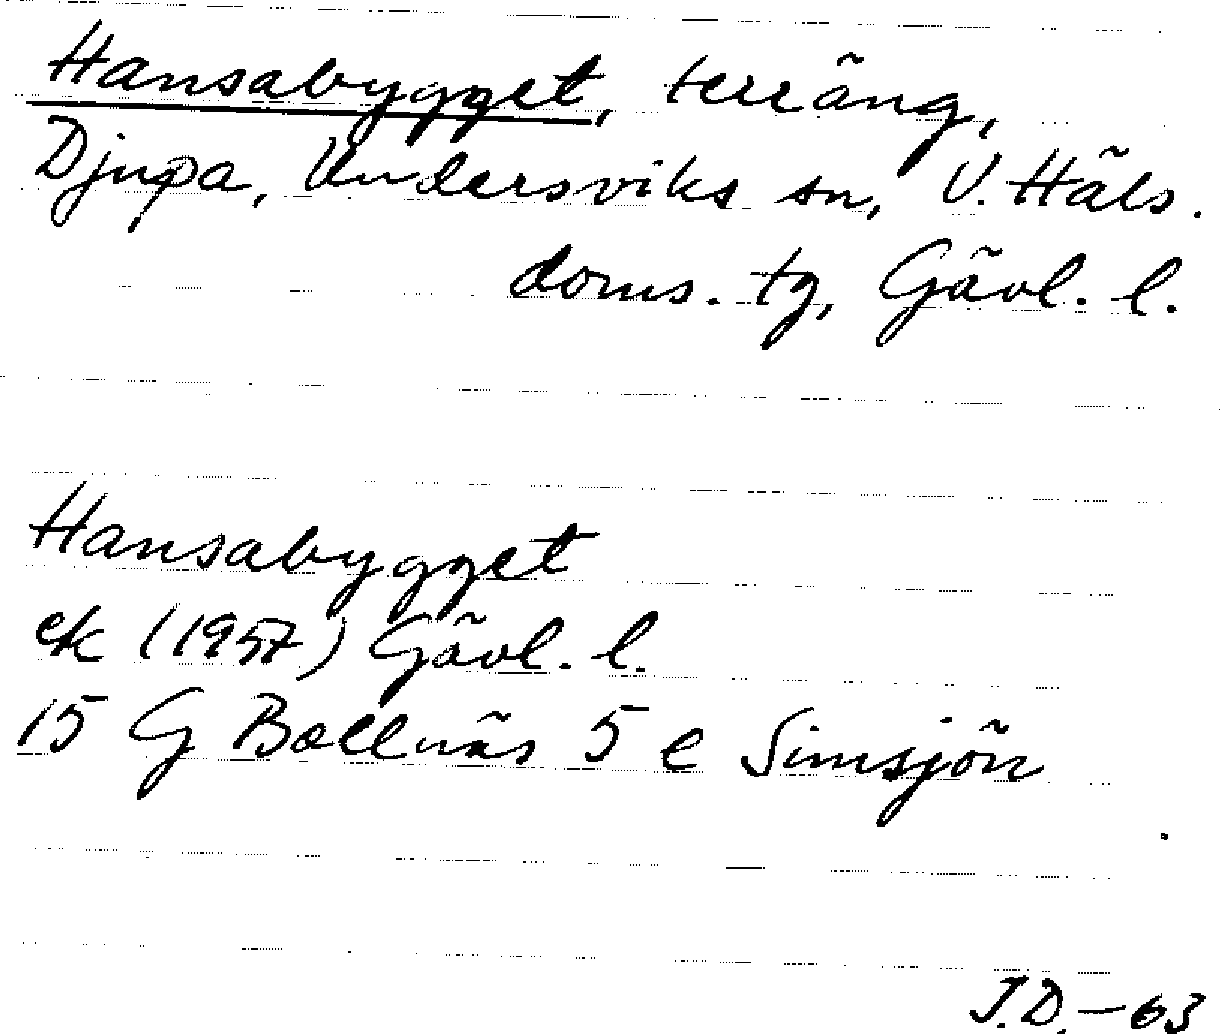 Hansabygget, terräng,
Djupa, Undersviks sn, V. Häls.
doms. tg, Gävl. l.
Hansabygget
ek (1957) Gävl. l.
15 G Bollnäs 5 e Simsjön
J.D. – 63